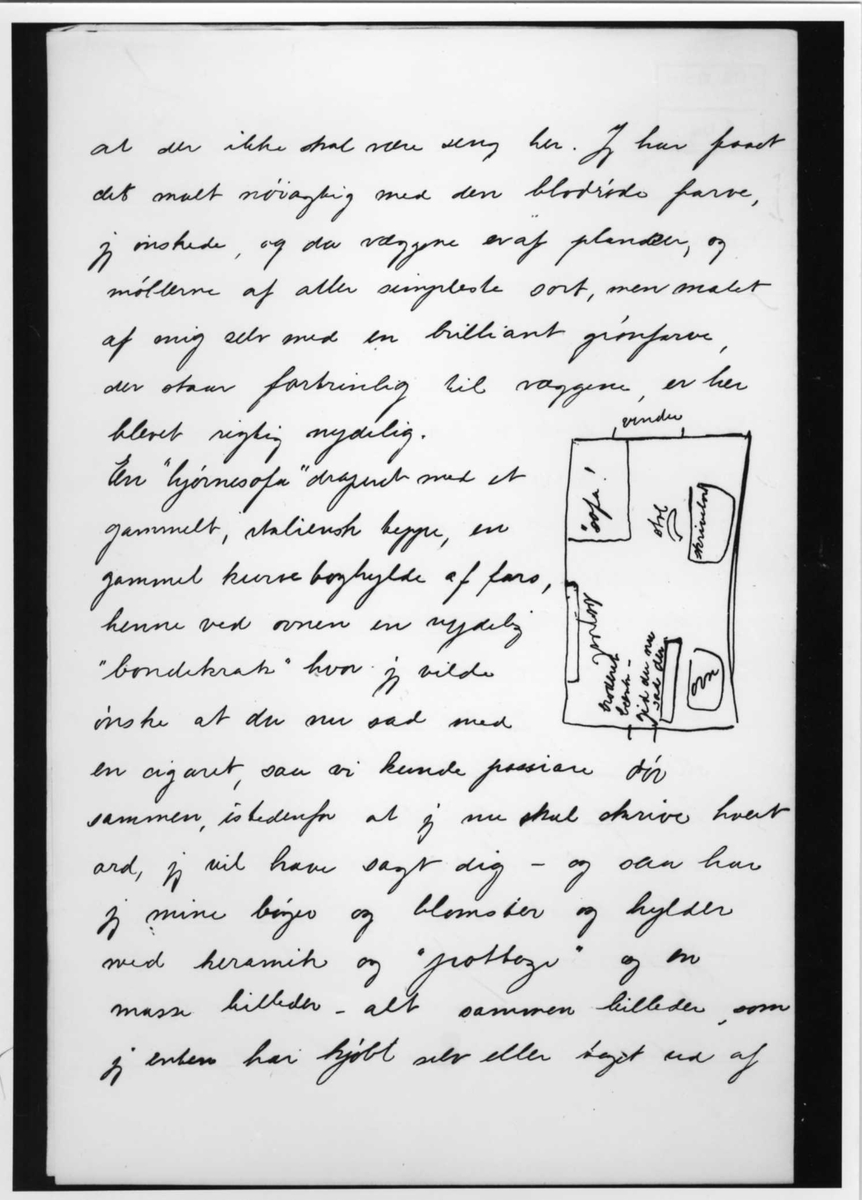 at der ikke skal være seng her. Jeg har faaet
det malt nøiagtig med den blodrøde farve,
jeg ønskede, og da væggene er af planker, og
møblerne af aller simpleste sort, men malet
af mig selv med en brilliant grønfarve,
der staar fortrinlig til væggene, er her
blevet rigtig nydelig.
En "hjørnesofa" draperet med et
gammelt, italiensk teppe, en
gammel kurvboghylde af fars,
henne ved ovnen en nydelig
"bondekrak" hvor jeg vilde
ønske at du nu sad med
en cigaret, saa vi kunde passiare
sammen, istedenfor at jeg nu skal skrive hvert
ord, jeg vil have sagt dig – og saa har
jeg mine bøger og blomster og hylder
med keramik og "pottøze" og en
masse billeder – alt sammen billeder, som
jeg enten har kjøbt selv eller taget ud af
vindu
sofa!
stol
skrivebord
broderet
bænk –
gid du nu
sad der
ovn
dør